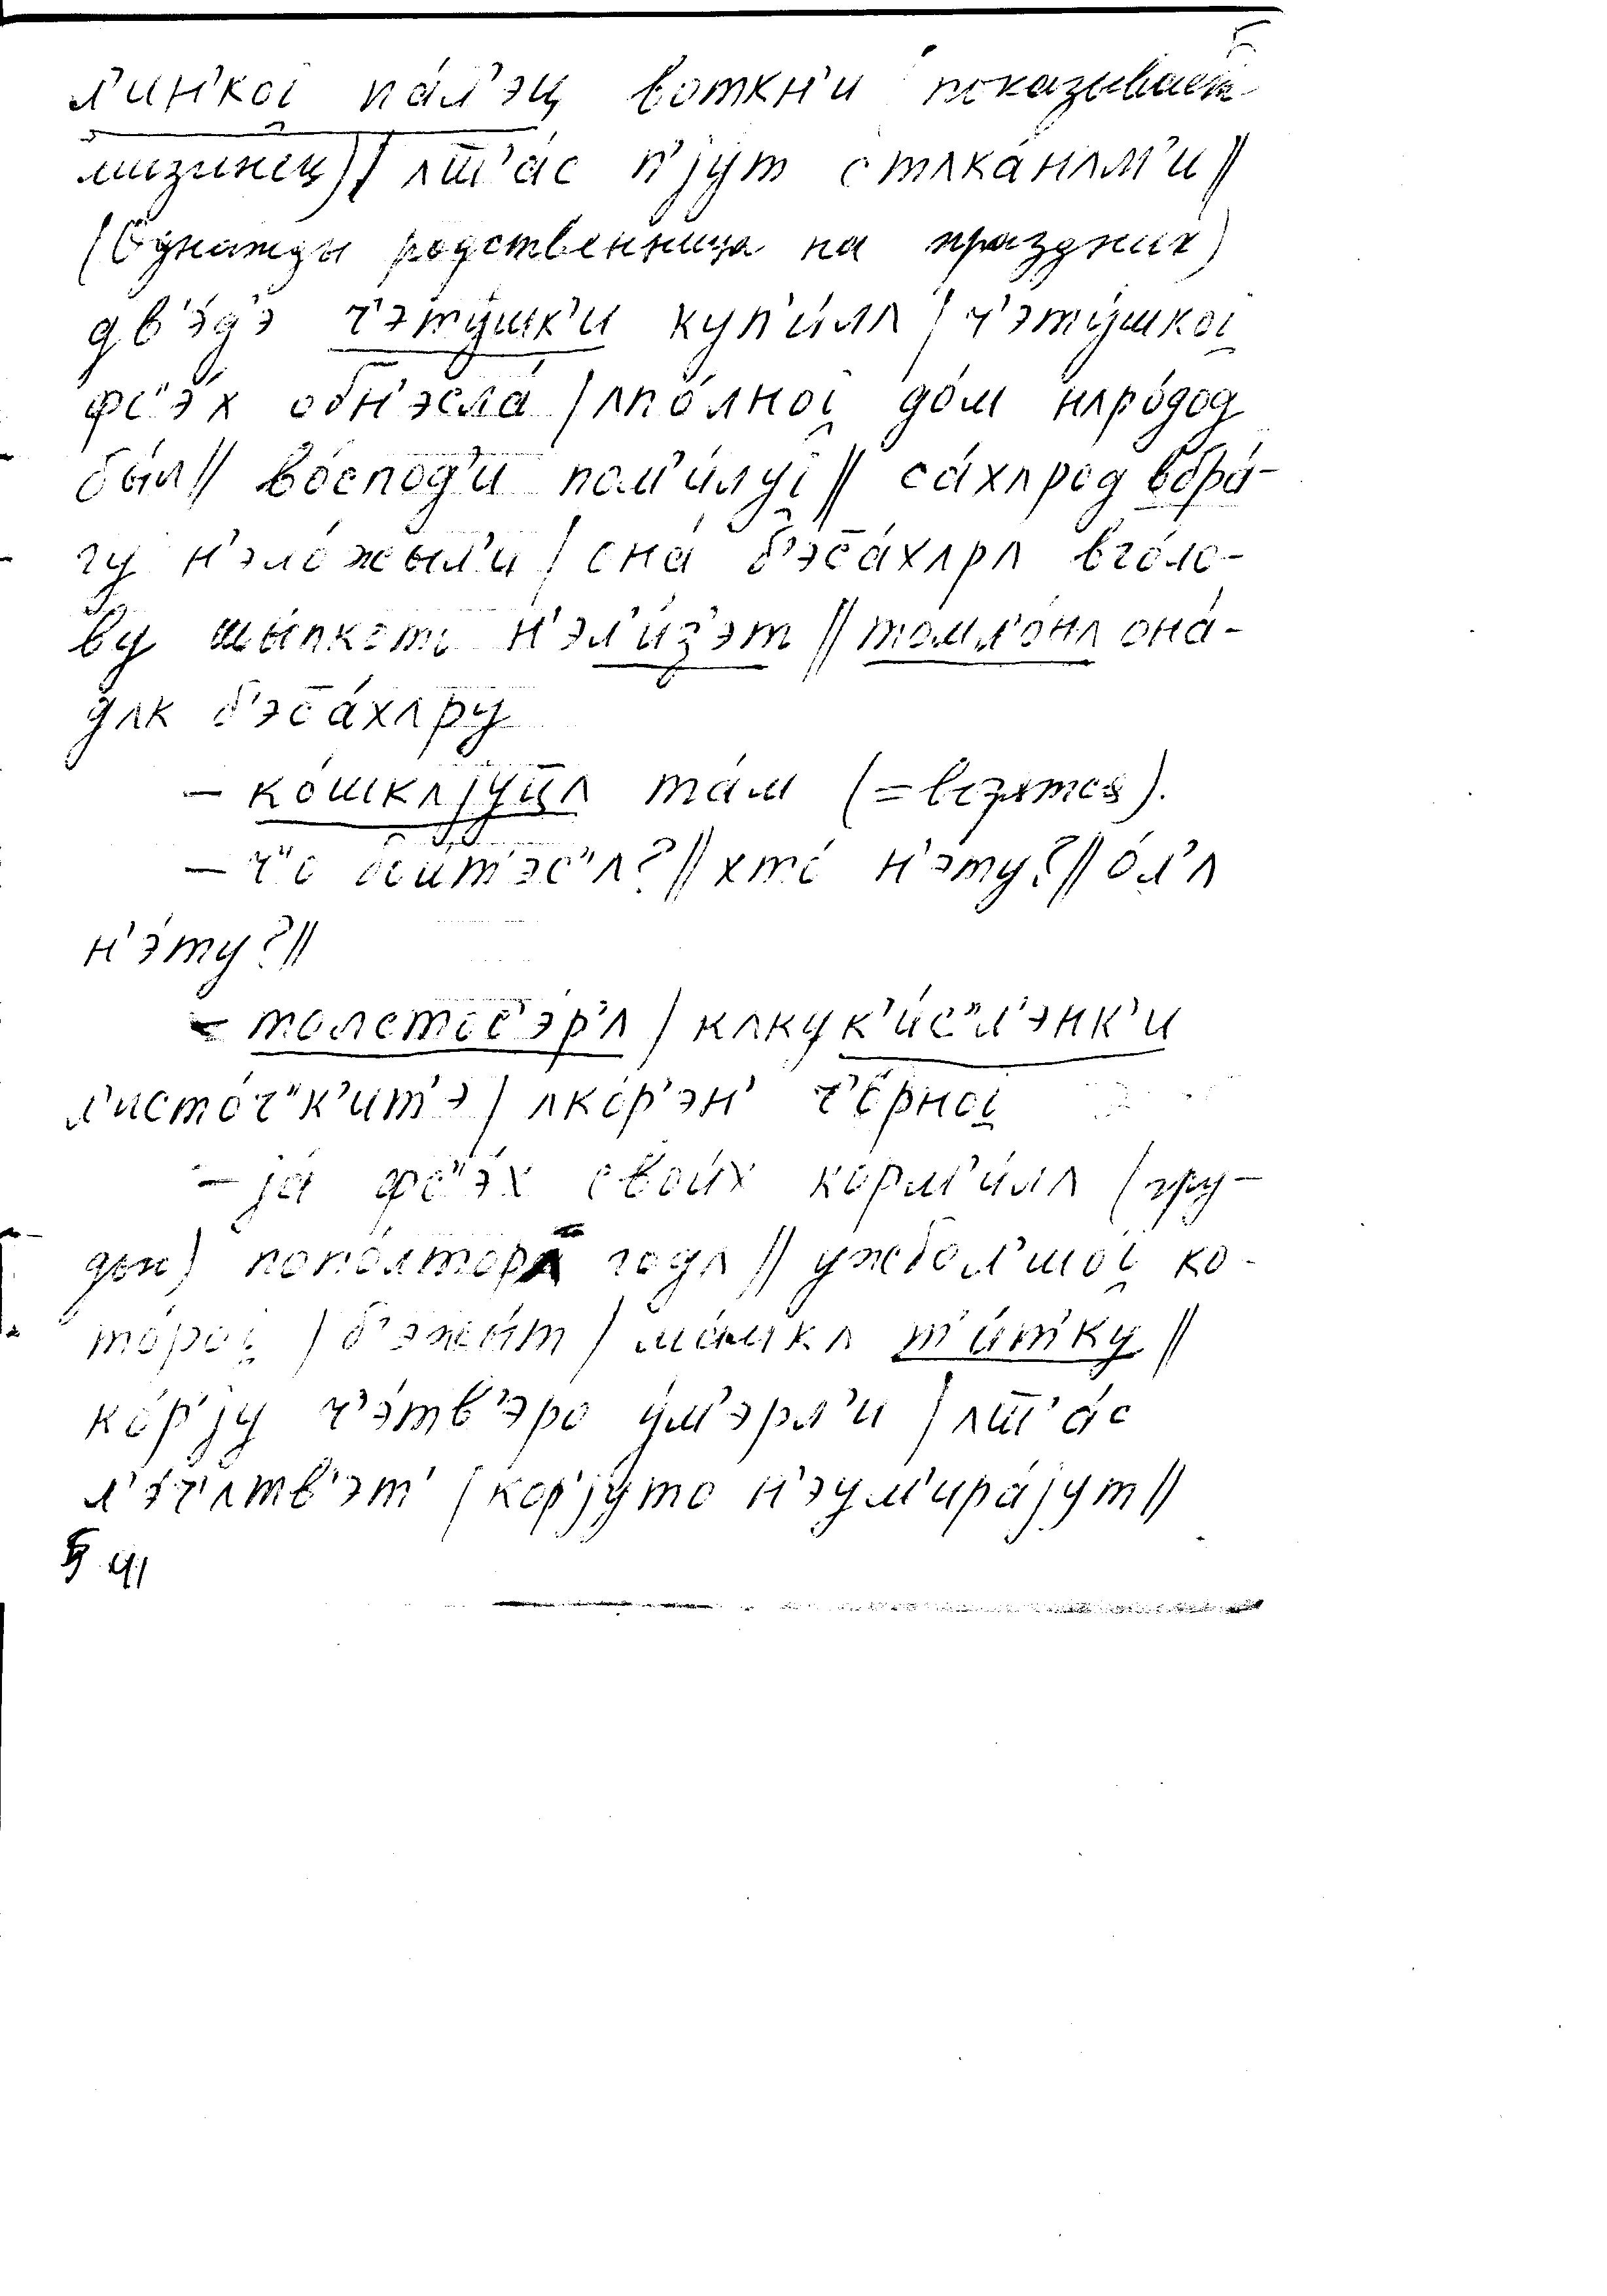 л'ин'коi̯ па́л'эц воткн'и показывает
мизинец)// ʌш̅'а́с п'jу́т стʌка́нʌм'и//
(Однажды родственница на праздник)
дв'э́д'э ч'эту́шк'и куп'и́лʌ / ч'эту́шкоi̯
фс"э́х обн'эсла́ / ʌпо́лноi̯ до́м нʌро́дод
бы́л// во́спод'и пом'и́луi̯ // са́хʌрод вбра́-
гу н'эло́жыл'и / она́ б'эса́хʌрʌ вго́ло-
ву шы́пкот' н'эл'и́з'эт // томл'о́нʌ она́-
дʌк б'эса́хʌру
– ко́шкʌjу́ц̅ʌ та́м (=возятся).
– ч"о бои́т'эс"ʌ?// хто́ н'э́ту?// о́л'ʌ
н'э́ту?//
– толстос'э́р'ʌ / кʌкук'и́с"л'энк'и
л'исто́ч"к'ит'э / ʌко́р'эн' ч'о́рноi̯
– jа́ фс"э́х свои́х корм'и́лʌ (гру-
дью) попо́лтора годʌ // ужбол'шо́i̯ ко-
то́роi̯ / б'эжы́т / ма́мкʌ т'и́т'ку //
ко́р'jу ч'э́тв'эро у́м'эрл'и / ʌш̅'а́с
л'э́ч'ʌтв'эт' / кор'jу́то н'эум'ира́jут//
§ 41